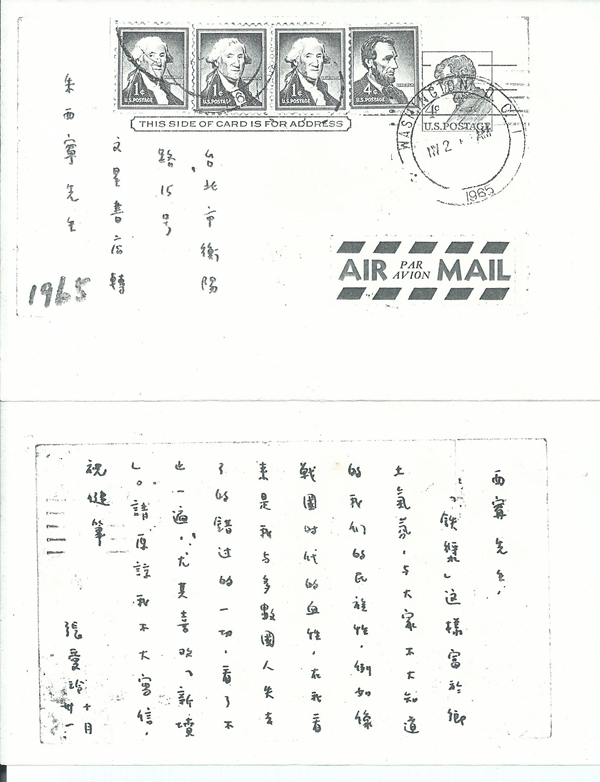 1¢ U.S. POSTAGE
1¢ U.S. POSTAGE
1¢ U.S. POSTAGE
4¢ U.S. POSTAGE
U.S. POSTAGE
WASHINGTON, D.C. 1
1965
THIS SIDE OF CARD IS FOR ADDRESS
台北市衡陽
路15号
文星書店轉
朱西甯先生
1965
AIR PAR AVION MAIL
西甯先生,
「鉄漿」这樣富於鄉
土氣氛,与大家不大知道
的我们的民族性,例如像
戰國时代的血性,在我看
来是我与多數國人失去
了的错过的一切,看了不
止一遍,尤其喜欢「新墳
」。請原諒我不大寫信。
祝健筆
張愛玲 十月
卅一